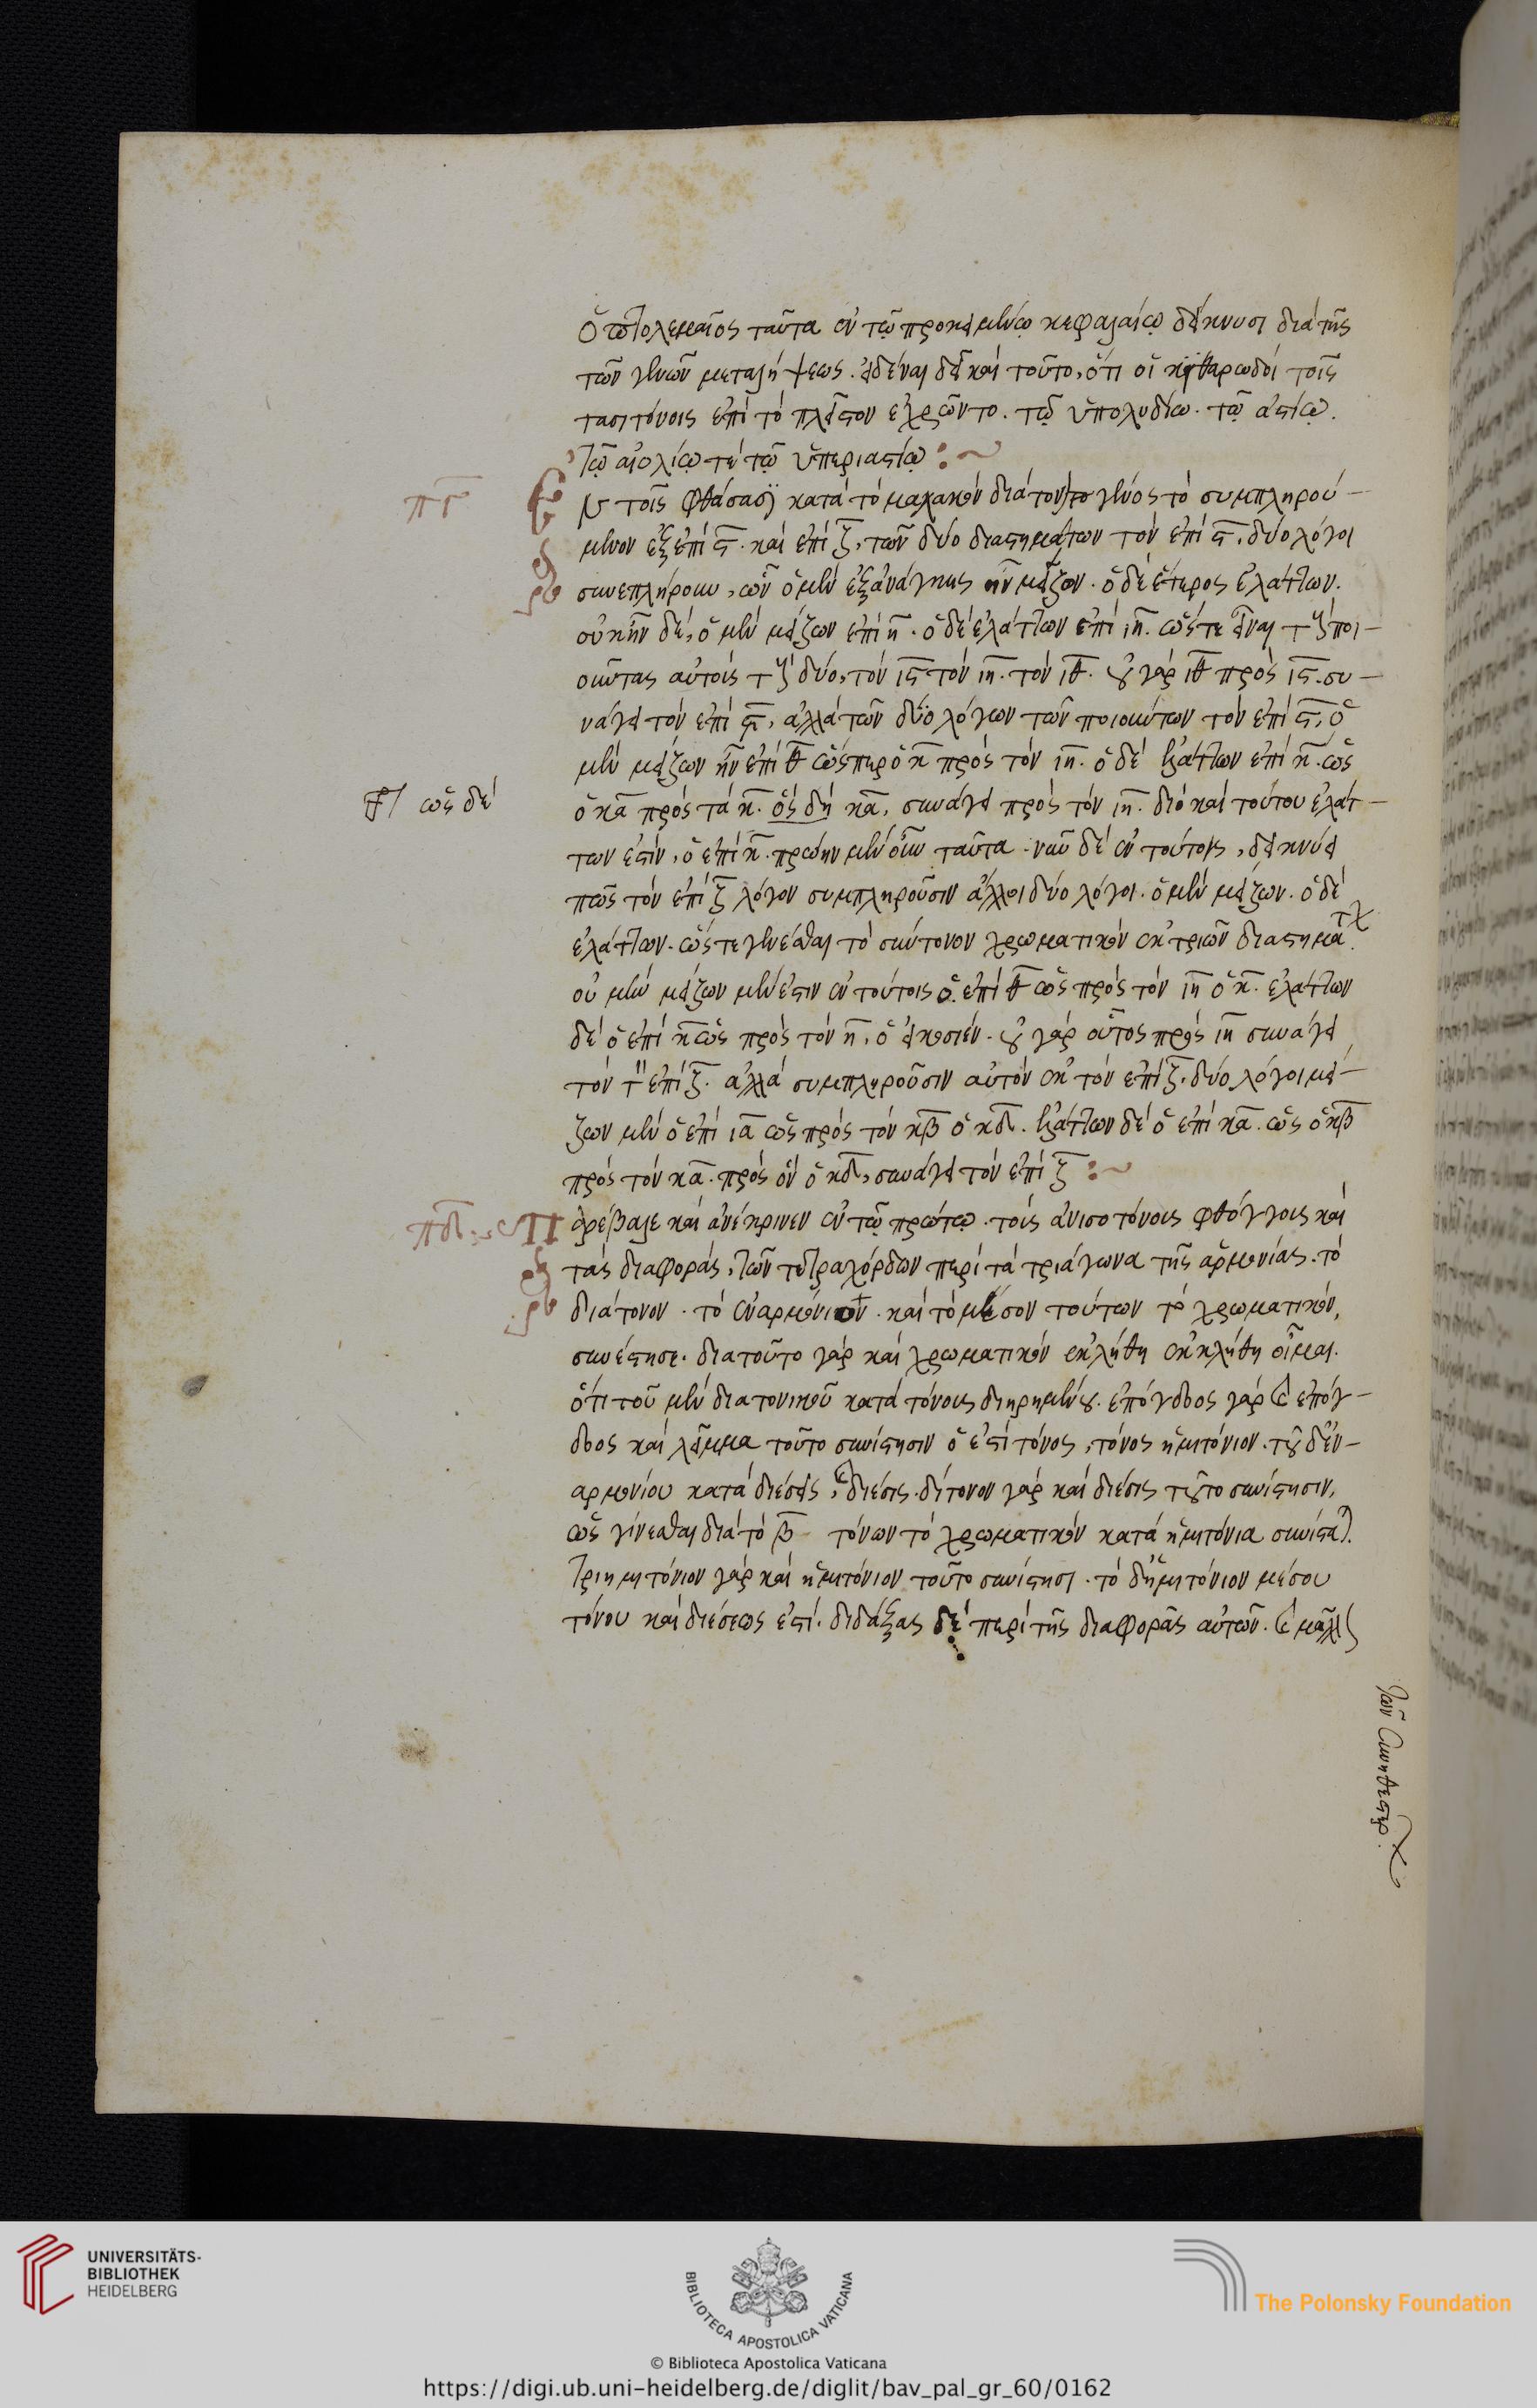 Ὁ πτολεμαῖος ταῦτα ἐν τῷ προκειμένῳ κεφαλαίῳ δείκνυσι διὰ τῆς
τῶν γενῶν μεταλήψεως. εἰδέναι δεῖ καὶ τοῦτο, ὅτι οἱ κιθαρωδοὶ τοῖς
τασι τόνοις ἐπὶ τὸ πλεῖστον ἐχρῶντο. τῷ ὑπολυδίω. τῷ ἀστίῳ.
τῷ αἰολίῳ τὲ τῷ ὑπεριαστίῳ :~
πγ
Ἐν τοῖς φθάσασι κατὰ τὸ μαλακὸν διάτονον γένος τὸ συμπληρού-
μενον ἐξ ἐπὶ ϛ. καὶ ἐπὶ ζ, τῶν δύο διαστημάτων τὸν ἐπὶ ϛ. δύο λόγοι
συνεπλήρουν, ὧν ὁ μὲν ἐξανάγκης ἦν μείζων. ὁ δὲ ἕτερος ἐλάττων.
οὐκῆν δὲ, ὁ μὲν μείζων ἐπὶ η. ὁ δὲ ἐλάττων ἐπὶ ιη. ὥστε εἶναι τοὺς ποι-
οῦντας αὐτοὺς τοὺς δύο, τὸν ιϛ τὸν ιη. τὸν ιθ. ὁ γὰρ ιθ πρὸς ιϛ. συ-
νάγει τὸν ἐπὶ ϛ, ἀλλὰ τῶν δύο λόγων τῶν ποιούντων τὸν ἐπὶ ϛ, ὁ
μὲν μείζων ἦν ἐπὶ θ ὥσπερ ὁ κ πρὸς τὸν ιη. ὁ δὲ ἐλάττων ἐπὶ κ. ὡς
ὡς δὲ
ὁ κα πρὸς τὰ κ. ὃς δὴ κα, συνάγει πρὸς τὸν ιη. διὸ καὶ τούτου ἐλάτ-
των ἐστὶν, ὁ ἐπὶ κ. πρώην μὲν οὖν ταῦτα. νῦν δὲ ἐν τούτοις, δεικνύει
πῶς τὸν ἐπὶ ζ λόγον συμπληροῦσιν ἄλλοι δύο λόγοι. ὁ μὲν μείζων. ὁ δὲ
ἐλάττων. ὥστε γενέσθαι τὸ σύντονον χρωματικὸν ἐκ τριῶν διαστημάτ
οὐ μὲν μείζων μὲν ἐστιν ἐν τούτοις ὁ ἐπὶ θ ὡς πρὸς τὸν ιη ὁ κ. ἐλάττων
δὲ ὁ ἐπὶ κ ὡς πρὸς τὸν η, ὁ εἰκοσιέν. ὁ γὰρ οὗτος πρὸς ιη συνάγει
τὸν ἐπὶ ζ. ἀλλὰ συμπληροῦσιν αὐτὸν ἐκ τὸν ἐπὶ ζ. δύο λόγοι μεί-
ζων μὲν ὁ ἐπὶ ια ὡς πρὸς τὸν κβ ὁ κδ. ἐλάττων δὲ ὁ ἐπὶ κα. ὡς ὁ κβ
πρὸς τὸν κα. πρὸς ὃν ὁ κδ, συνάγει τὸν ἐπὶ ζ :~
πδ
Παρέβαλε καὶ ἀνέκρινεν ἐν τῷ πρώτῳ. τοῖς ἀνισοτόνοις φθόγγοις καὶ
τὰς διαφορὰς, τῶν τετραχόρδων περὶ τὰ τριάγωνα τῆς ἁρμονίας. τὸ
διάτονον. τὸ ἐναρμόνιον. καὶ τὸ μέσον τούτων τὸ χρωματικὸν,
συνέστησε. διατοῦτο γὰρ καὶ χρωματικὸν ἐκλήθη ἐκκλήθη οἶμαι.
ὅτι τοῦ μὲν διατονικοῦ κατὰ τόνους διηρημένου. ἐπόγδοος γὰρ καὶ ἐπόγ-
δοος καὶ λεῖμμα τοῦτο συνίστησιν ὅ ἐστι τόνος, τόνος ἡμιτόνιον. τοῦ δ' ἐν-
αρμονίου κατὰ διέσεις, καὶ διέσις. δίτονον γὰρ καὶ διέσις τοῦτο συνίστησιν,
ὡς γίνεσθαι διὰ τὸ β τόνων τὸ χρωματικὸν κατὰ ἡμιτόνια συνίστα
τριημιτόνιον γὰρ καὶ ἡμιτόνιον τοῦτο συνίστησι. τὸ δ' ἡμιτόνιον μέσου
τόνου καὶ διέσεως ἐστί. διδάξας δὲ περὶ τῆς διαφορᾶς αὐτῶν. καὶ μᾶλλ
UNIVERSITÄTS-
BIBLIOTHEK
HEIDELBERG
BIBLIOTECA APOSTOLICA VATICANA
© Biblioteca Apostolica Vaticana
The Polonsky Foundation
https://digi.ub.uni-heidelberg.de/diglit/bav_pal_gr_60/0162